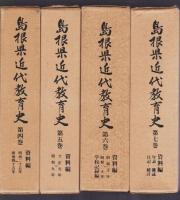 島根県近代教育史
第四巻
資料編
島根県近代教育史
第五巻
資料編
島根県近代教育史
第六巻
資料編
島根県近代教育史
第七巻
資料編